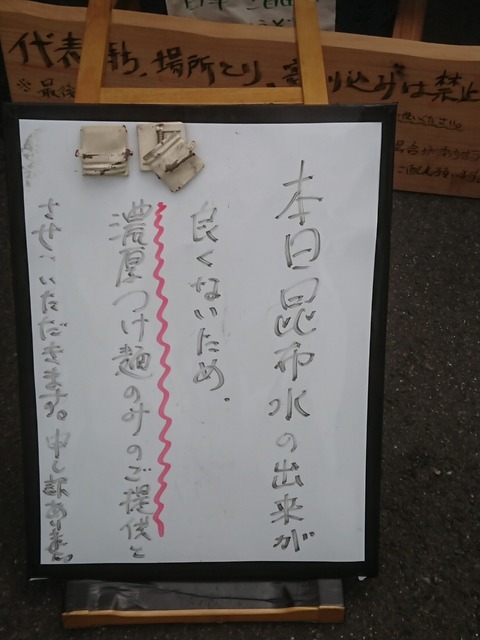 代表待ち、場所とり、割り込みは禁止
※最後
本日昆布水の出来が
良くないため、
濃厚つけ麺のみのご提供と
させていただきます。申し訳ありません。